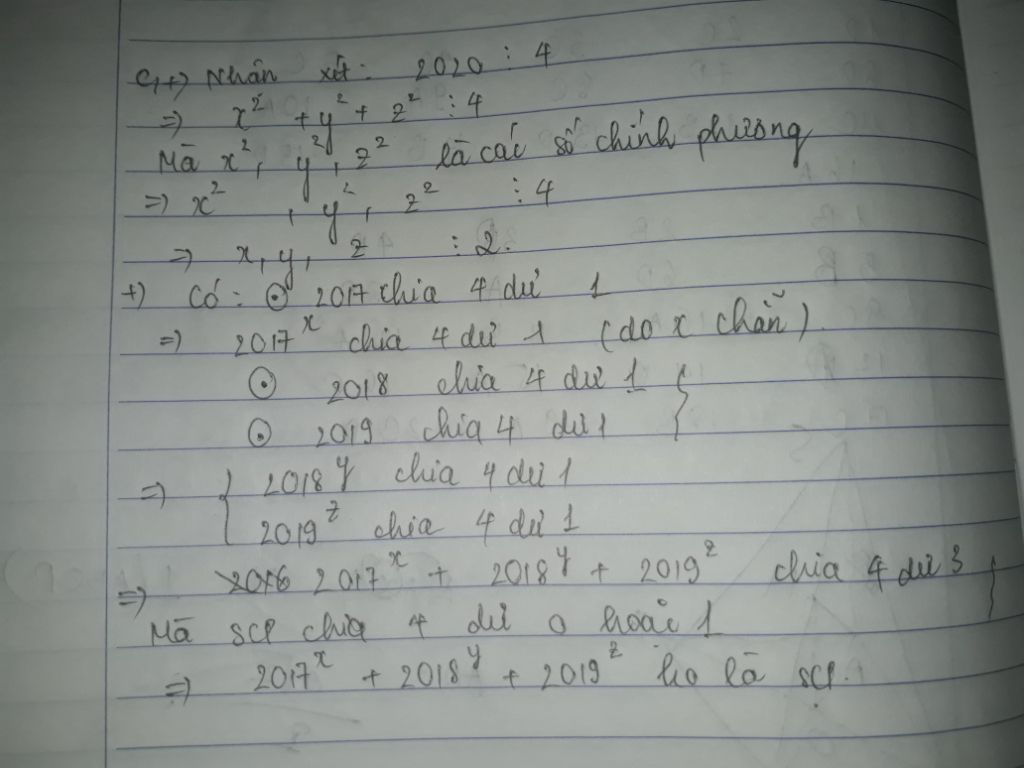 C, +) Nhận xét: 2020 ⋮ 4
=> x² + y² + z² ⋮ 4
Mà x², y², z² là các số chính phương
=> x², y², z² ⋮ 4
=> x, y, z ⋮ 2.
+) Có: ⊙ 2017 chia 4 dư 1
=> 2017ˣ chia 4 dư 1 (do x chẵn)
⊙ 2018 chia 4 dư 1 }
⊙ 2019 chia 4 dư 1
=> { 2018ʸ chia 4 dư 1
2019ᶻ chia 4 dư 1
=> 2017ˣ + 2018ʸ + 2019ᶻ chia 4 dư 3 }
Mà scp chia 4 dư 0 hoặc 1
=> 2017ˣ + 2018ʸ + 2019ᶻ ko là scp.